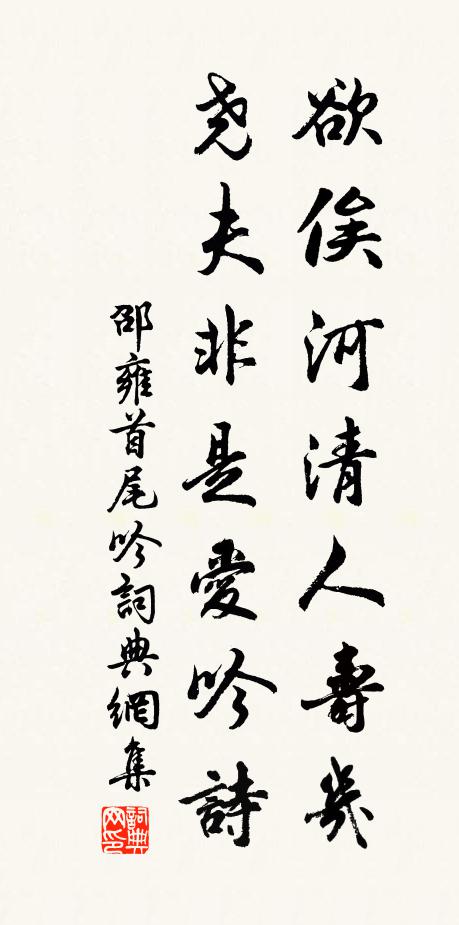 欲俟河清人壽幾
堯夫非是愛吟詩
邵雍首尾吟詞典網集
詞典网印